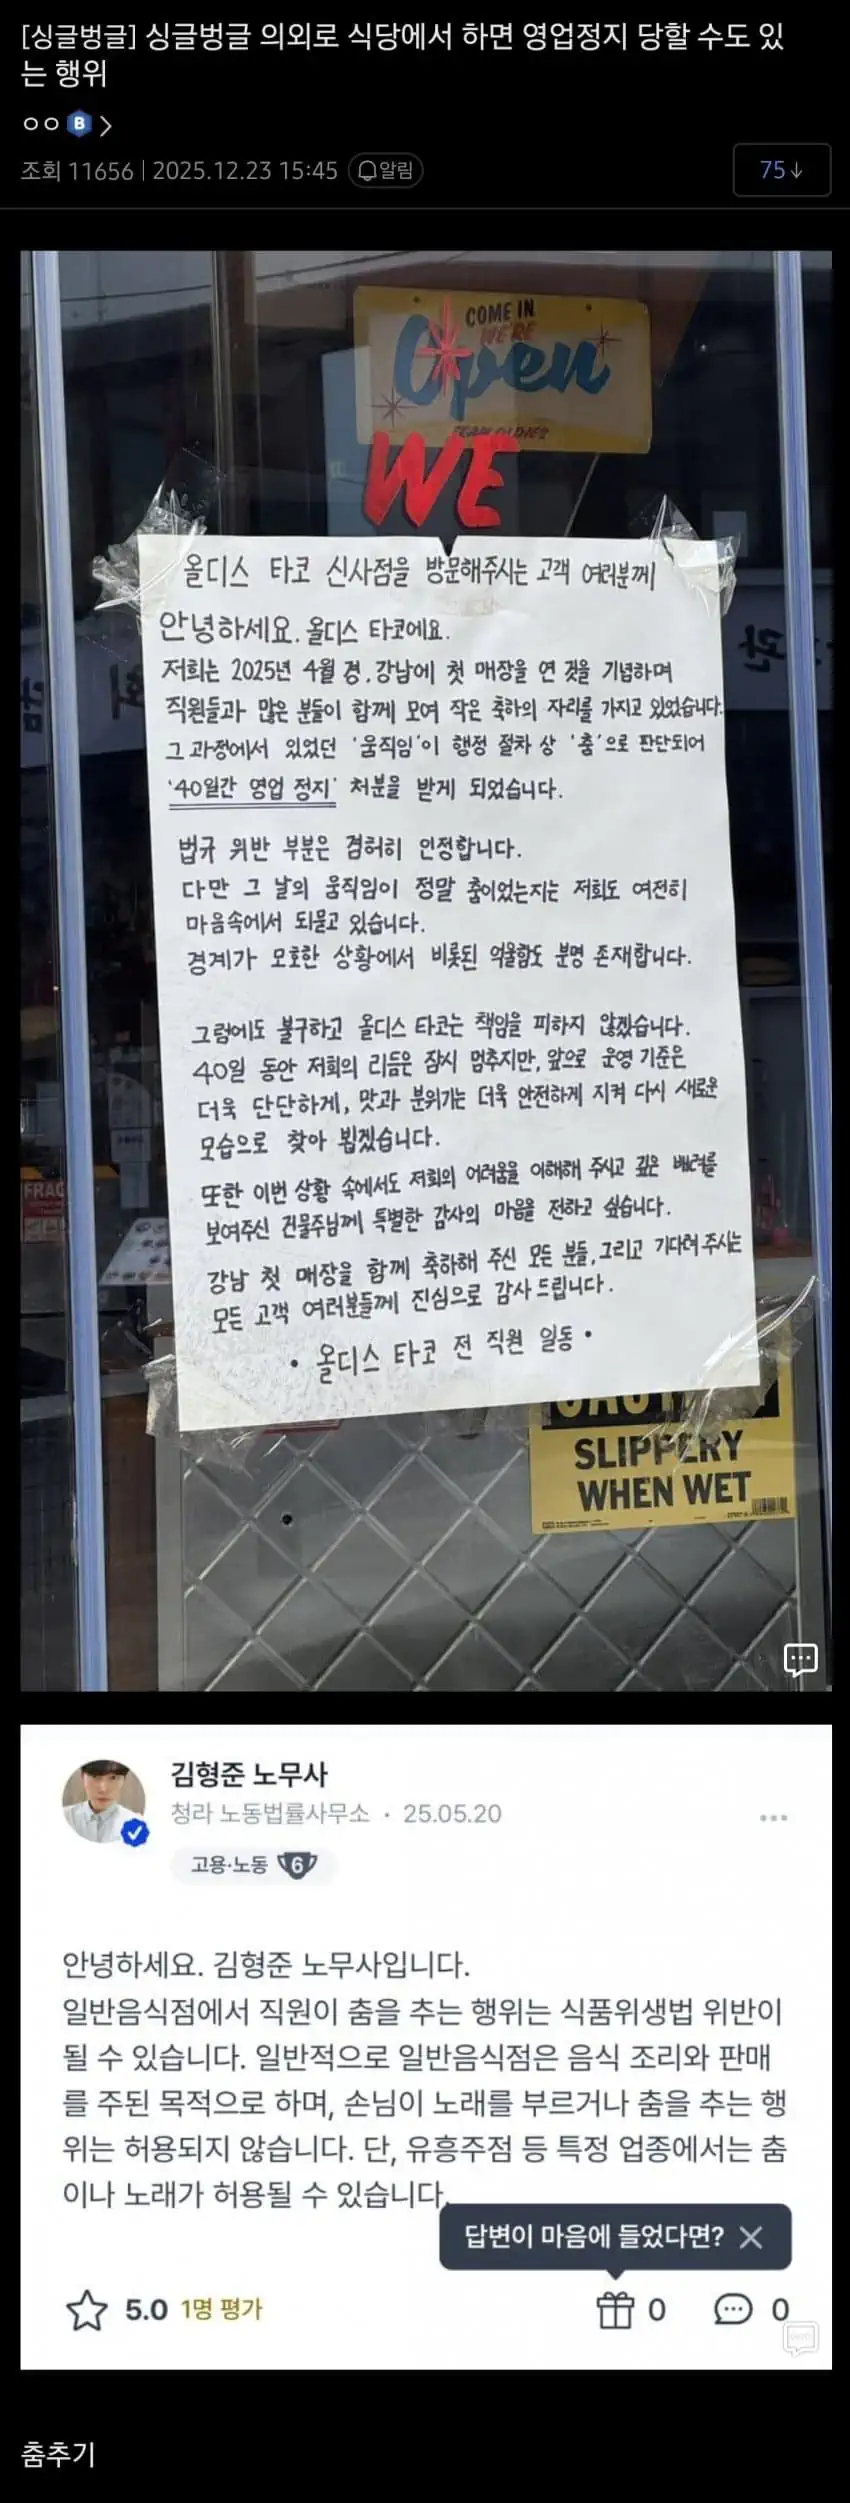 [싱글벙글] 싱글벙글 의외로 식당에서 하면 영업정지 당할 수도 있
는 행위
ㅇㅇ B >
조회 11656 | 2025.12.23 15:45 알림
75↓
COME IN
WE'RE
Open
TEAM OLDIES
WE
올디스 타코 신사점을 방문해주시는 고객 여러분께
안녕하세요. 올디스 타코에요.
저희는 2025년 4월 경, 강남에 첫 매장을 연 것을 기념하며
직원들과 많은 분들이 함께 모여 작은 축하의 자리를 가지고 있었습니다.
그 과정에서 있었던 '움직임'이 행정 절차 상 '춤'으로 판단되어
'40일간 영업 정지' 처분을 받게 되었습니다.
법규 위반 부분은 겸허히 인정합니다.
다만 그 날의 움직임이 정말 춤이었는지는 저희도 여전히
마음속에서 되묻고 있습니다.
경계가 모호한 상황에서 비롯된 억울함도 분명 존재합니다.
그럼에도 불구하고 올디스 타코는 책임을 피하지 않겠습니다.
40일 동안 저희의 리듬은 잠시 멈추지만, 앞으로 운영 기준은
더욱 단단하게, 맛과 분위기는 더욱 안전하게 지켜 다시 새로운
모습으로 찾아 뵙겠습니다.
또한 이번 상황 속에서도 저희의 어려움을 이해해 주시고 깊은 배려를
보여주신 건물주님께 특별한 감사의 마음을 전하고 싶습니다.
강남 첫 매장을 함께 축하해 주신 모든 분들, 그리고 기다려 주시는
모든 고객 여러분들께 진심으로 감사 드립니다.
• 올디스 타코 전 직원 일동 •
FRAG
CAUTION
SLIPPERY
WHEN WET
김형준 노무사
청라 노동법률사무소 · 25.05.20
고용·노동 6
안녕하세요. 김형준 노무사입니다.
일반음식점에서 직원이 춤을 추는 행위는 식품위생법 위반이
될 수 있습니다. 일반적으로 일반음식점은 음식 조리와 판매
를 주된 목적으로 하며, 손님이 노래를 부르거나 춤을 추는 행
위는 허용되지 않습니다. 단, 유흥주점 등 특정 업종에서는 춤
이나 노래가 허용될 수 있습니다.
답변이 마음에 들었다면? ×
5.0 1명 평가
0
0
춤추기